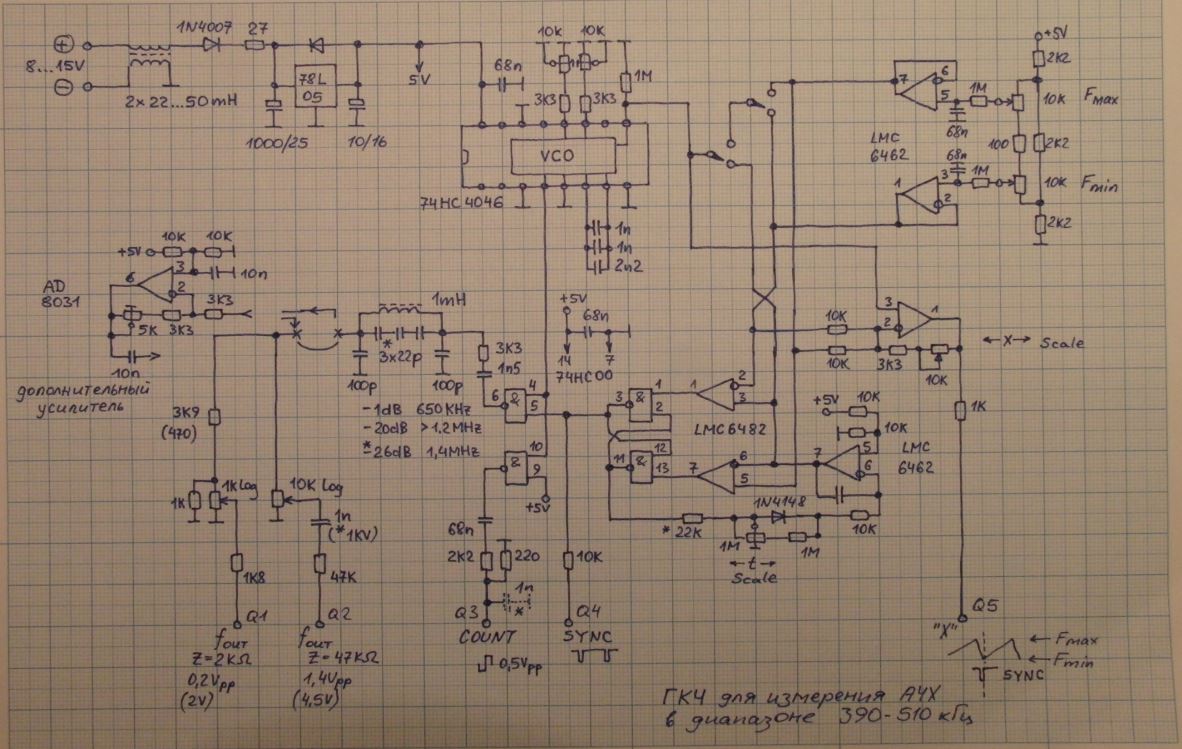 1N4007
27
8...15V
78L
05
5V
68n
10K
10K
1M
3K3
3K3
2x22...50mH
1000/25
10/16
VCO
74HC4046
1n
1n
2n2
+5V
2K2
7
6
5
1M
10K
Fmax
68n
LMC
6462
100
2K2
68n
1
3
2
1M
10K
Fmin
2K2
10K
10K
+5V
6
3
2
10n
AD
8031
5K
3K3
3K3
10n
дополнительный
усилитель
1mH
*
3x22p
100p
100p
-1dB 650KHz
-20dB >1.2MHz
*
-26dB 1,4MHz
3K3
1n5
+5V
68n
14
7
74HC00
6
&
4
5
10
&
9
+5V
3
&
1
2
11
&
12
13
1
2
3
LMC6482
7
6
5
10K
10K
3
2
1
3K3
10K
←X→ Scale
1K
+5V
10K
10K
7
5
6
LMC
6462
1N4148
* 22K
1M
1M
10K
←t→
Scale
3K9
(470)
1K
1KLog
10K Log
1n
(*1KV)
1K8
47K
68n
2K2
220
1n
*
10K
Q1
fout
Z=2KΩ
0,2Vpp
(2V)
Q2
fout
Z=47KΩ
1,4Vpp
(4,5V)
Q3
COUNT
0,5Vpp
Q4
SYNC
Q5
"X"
Fmax
Fmin
SYNC
ГКЧ для измерения АЧХ
в диапазоне 390-510 кГц